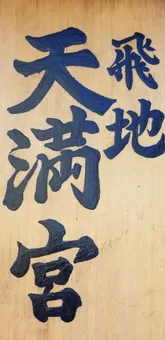 飛地
天満宮